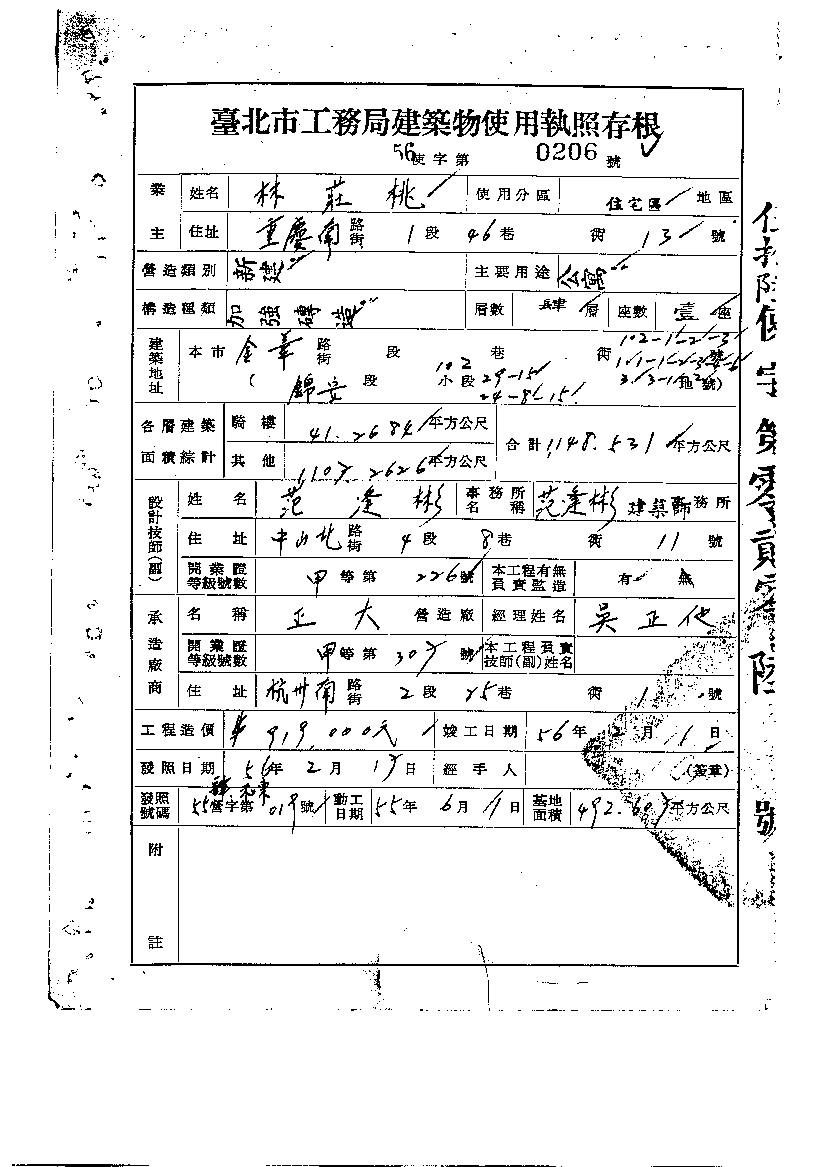 臺北市工務局建築物使用執照存根
56使字第 0206 號
業主 姓名 林莊桃 使用分區 住宅區 地區
住址 重慶南 路街 1 段 46 巷 衖 13 號
營造類別 新建 主要用途 公寓
構造種類 加強磚造 層數 肆 層 座數 壹 座
建築地址 本市 金華 路街 段 巷 衖 號
( 錦安 段 小段 29-15 24-8 地號)
各層建築面積綜計 騎樓 41.2684 平方公尺 合計 1148.531 平方公尺
其他 1107.2626 平方公尺
設計技師(副) 姓名 范逢彬 事務所名稱 范逢彬 建築師事務所
住址 中山北 路街 4 段 8 巷 衖 11 號
開業證等級號數 甲 等第 226 號 本工程有無負責監造 有 無
承造廠商 名稱 正大 營造廠 經理姓名 吳正他
開業證等級號數 甲 等第 307 號 本工程負責技師(副)姓名
住址 杭州南 路街 2 段 25 巷 衖 1 號
工程造價 919,000元 竣工日期 56 年 2 月 1 日
發照日期 56 年 2 月 17 日 經手人 (簽章)
發照號碼 55營字第 019 號 動工日期 55 年 6 月 1 日 基地面積 492.607 平方公尺
附註
使字第零貳零陸號